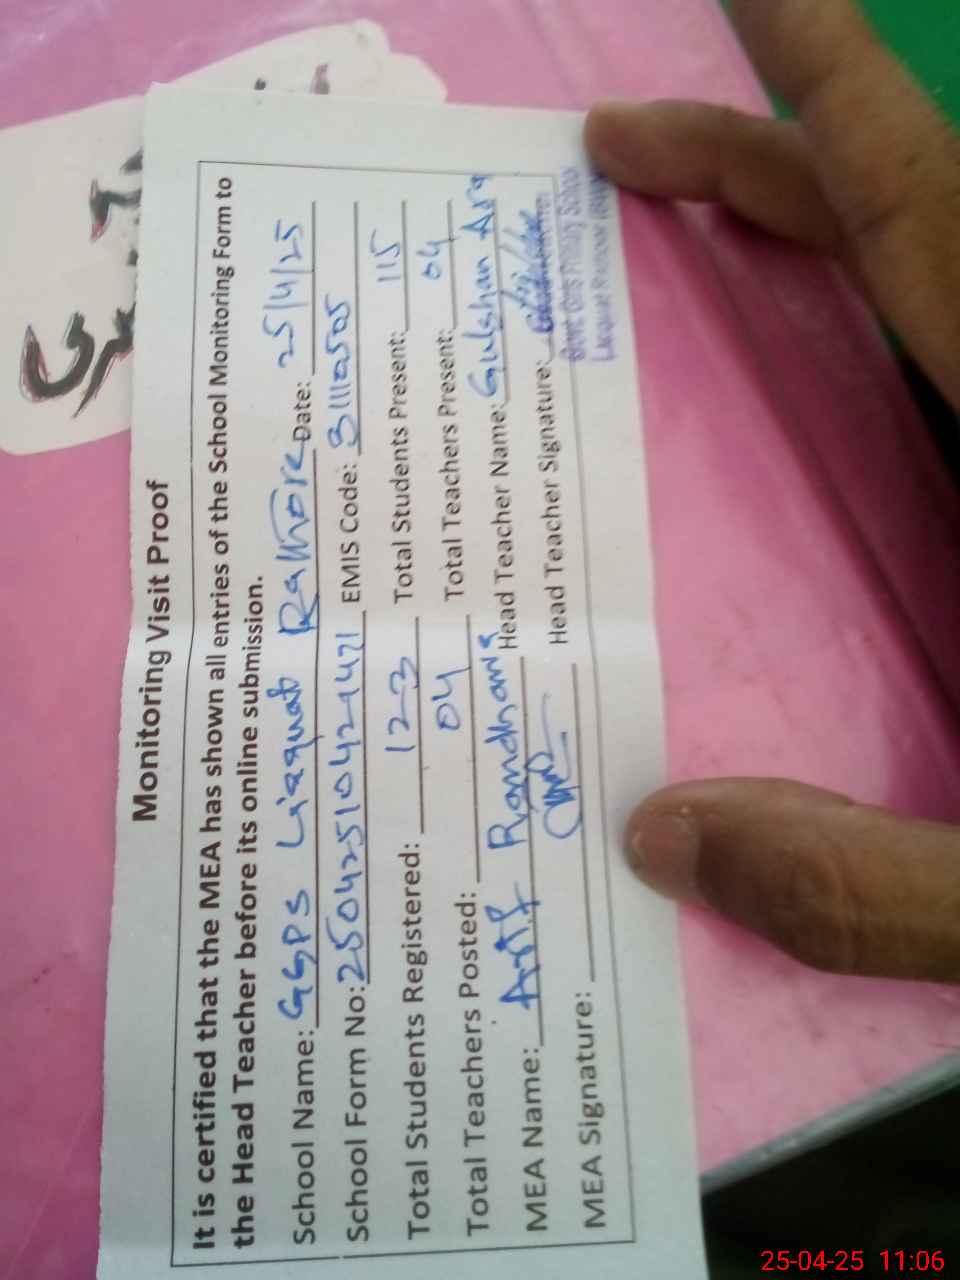 Monitoring Visit Proof
It is certified that the MEA has shown all entries of the School Monitoring Form to
the Head Teacher before its online submission.
School Name: GGPS Liaquat Rathore Date: 25/4/25
School Form No: 25042510429471 EMIS Code: 31110505
Total Students Registered: 123 Total Students Present: 115
Total Teachers Posted: 04 Total Teachers Present: 04
MEA Name: Asif Randhawa Head Teacher Name: Gulshan Ara
MEA Signature: Head Teacher Signature:
Govt Girls Primary School
Liaquat Rathore
25-04-25 11:06